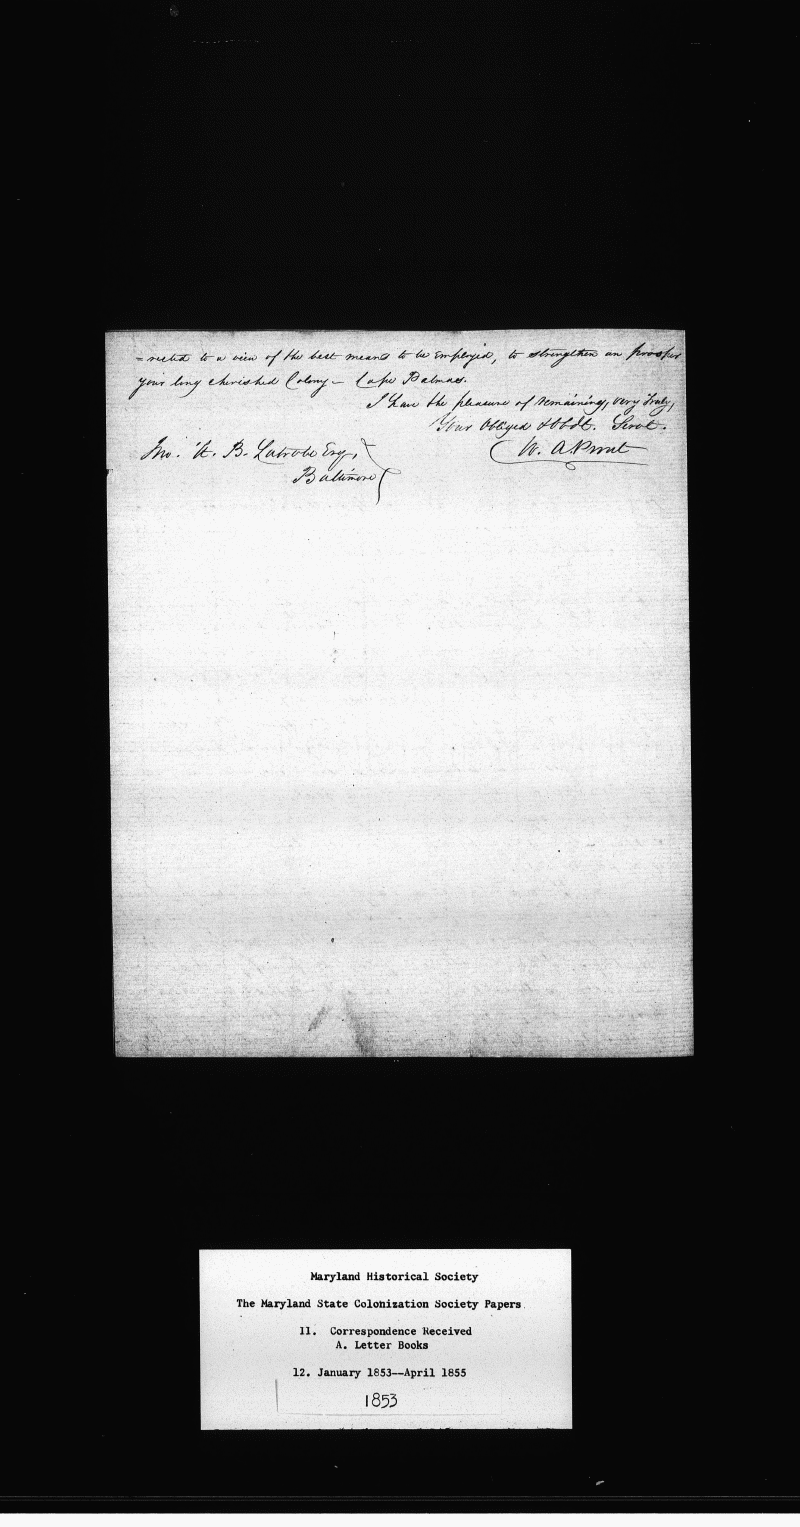 =rected to a view of the best means to be employed, to strengthen an prosper
your long cherished Colony – Cape Palmas.
I have the pleasure of remaining, very truly,
Your Obliged & Obdt. Servt.
W. A. Prout
Jno. H. B. Latrobe Esq,
Baltimore
Maryland Historical Society
The Maryland State Colonization Society Papers
11. Correspondence Received
A. Letter Books
12. January 1853--April 1855
1853